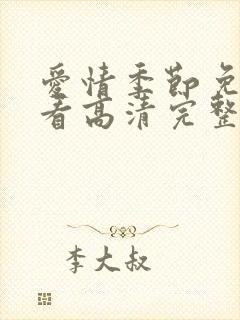 愛情季節免
看高清完整
李大叔